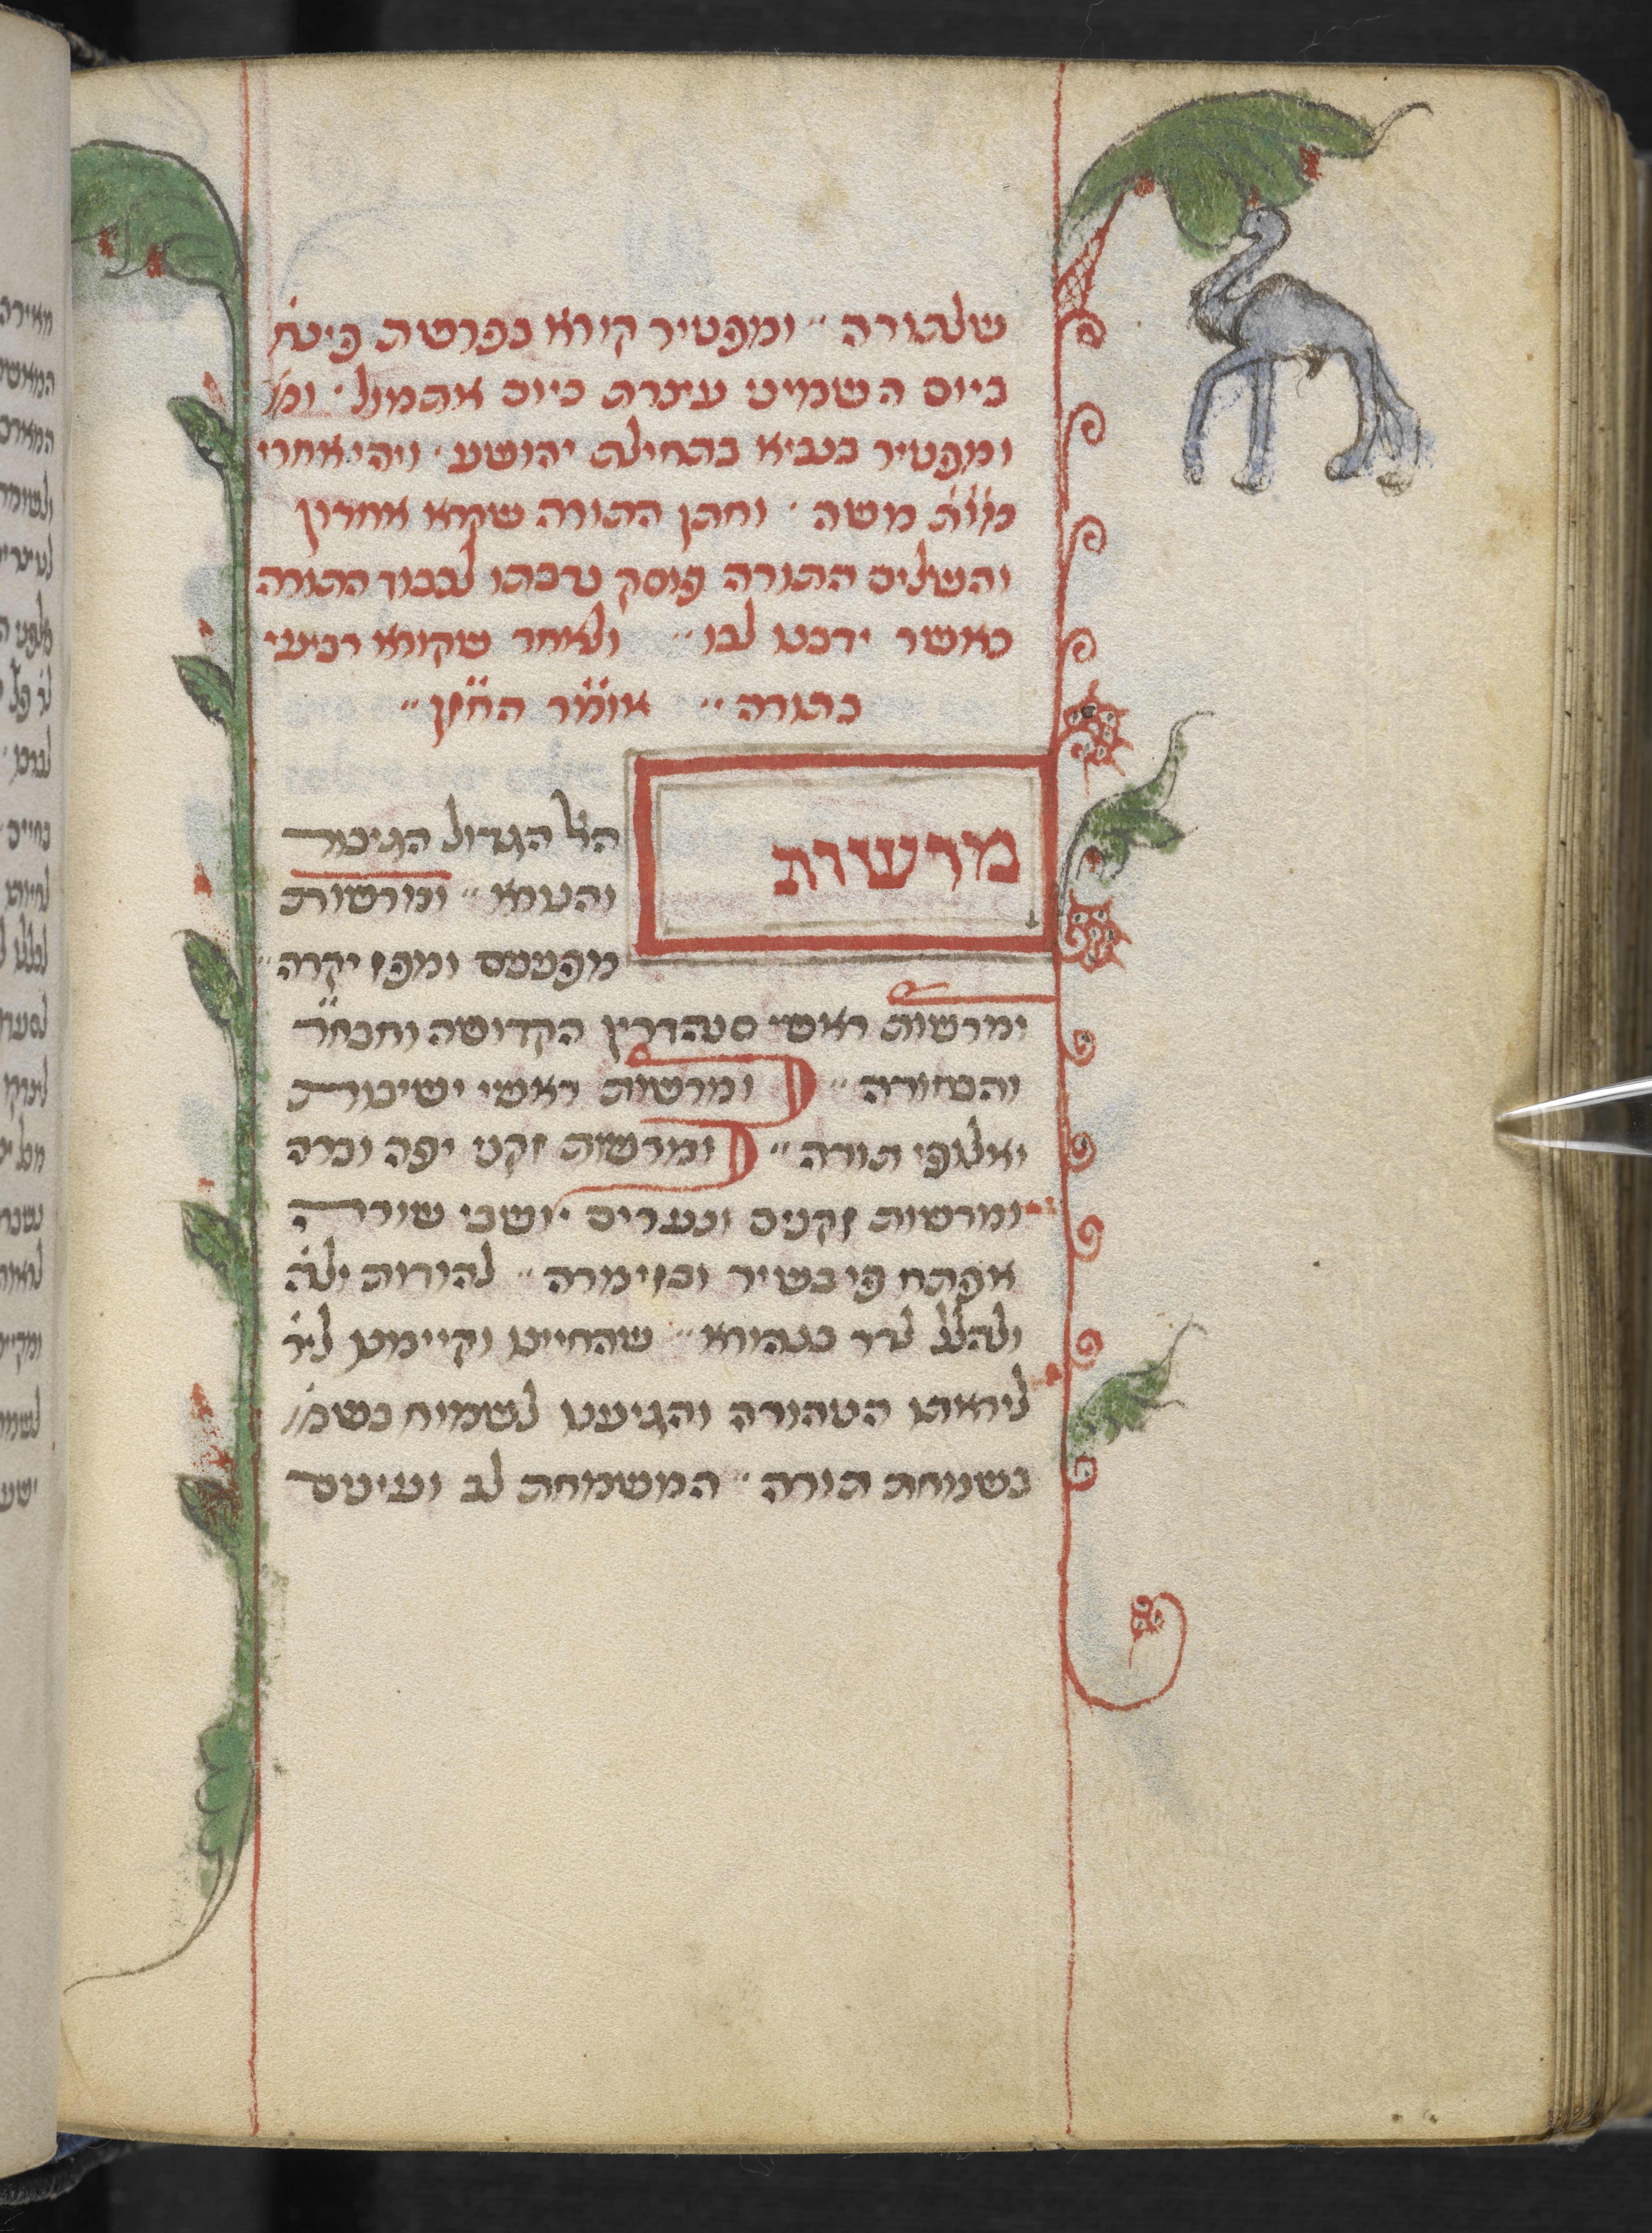 שלתורה ״ ומפטיר קורא בפרשת פינח׳
ביום השמיני עצרת כיום אתמול ·
ומפטיר בנביא בתחילת יהושע · ויהי אחרי
מות משה · וחתן התורה שקרא אחרון
והשלים התורה פוסק נדבתו לכבוד התורה
כאשר ידבנו לבו ״ ולאחר שקורא רביעי
בתורה ״ אומ׳ר החזן ״
מרשות
האל הגדול הגיבור
והנורא ״ ומרשות
מפטפט ומפז יקרה ״
ומרשות ראשי סנהדרין הקדושה וחבח״ר
והטהורה ״ ומרשות ראשי ישיבות
ואלופי תורה ״ ומרשות זקני יפה וברה
ומרשות זקנים ונערים יושבי שורה
אפתח פי בשיר ובזימרה ״ להודות ולה׳
ולהלל לדר בנהורא ״ שהחיינו וקיימנו לי׳ר
ליראתו הטהורה והגיענו לשמוח בשמ׳
בשמחת תורה · המשמחת לב ועינים